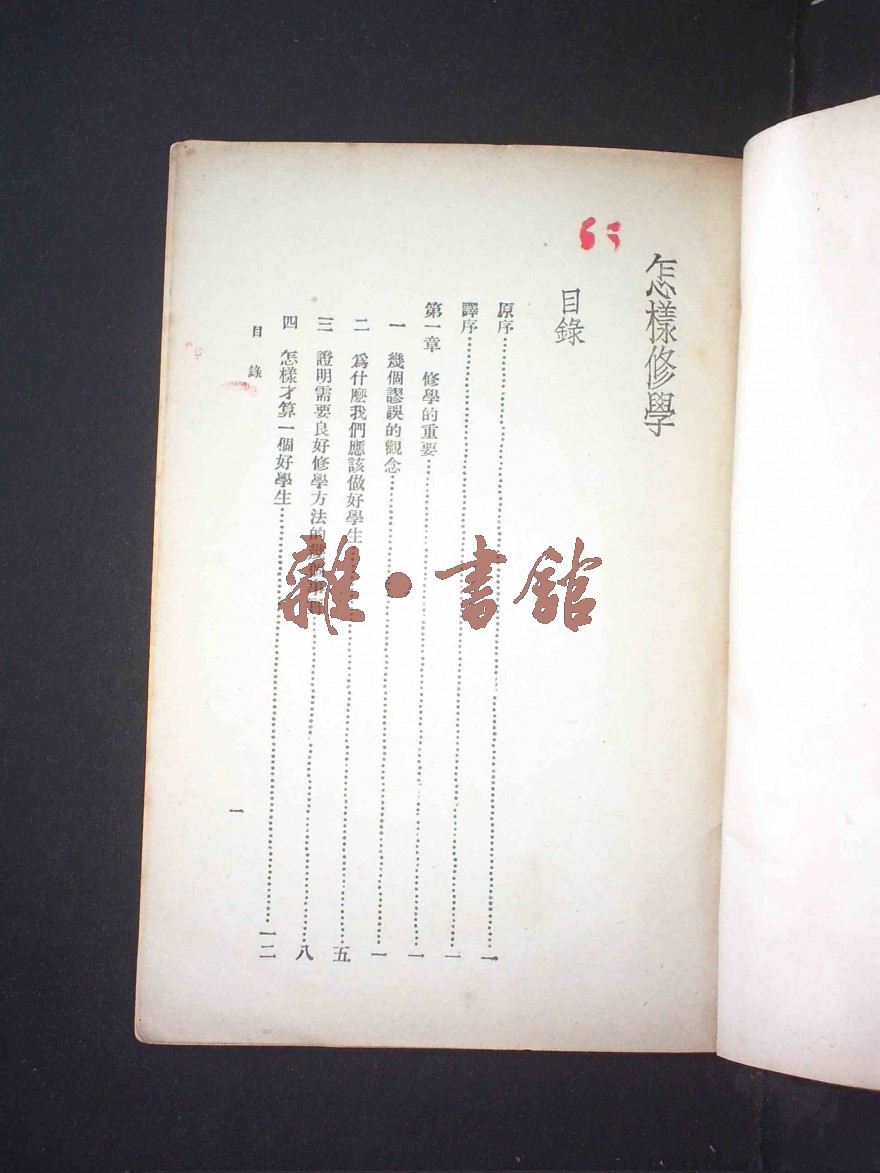 怎樣修學
目錄
原序……一
譯序……一
第一章　修學的重要……一
一　幾個謬誤的觀念……一
二　爲什麽我們應該做好學生……五
三　證明需要良好修學方法的……八
四　怎樣才算一個好學生……一二
目錄
一
雜·書館